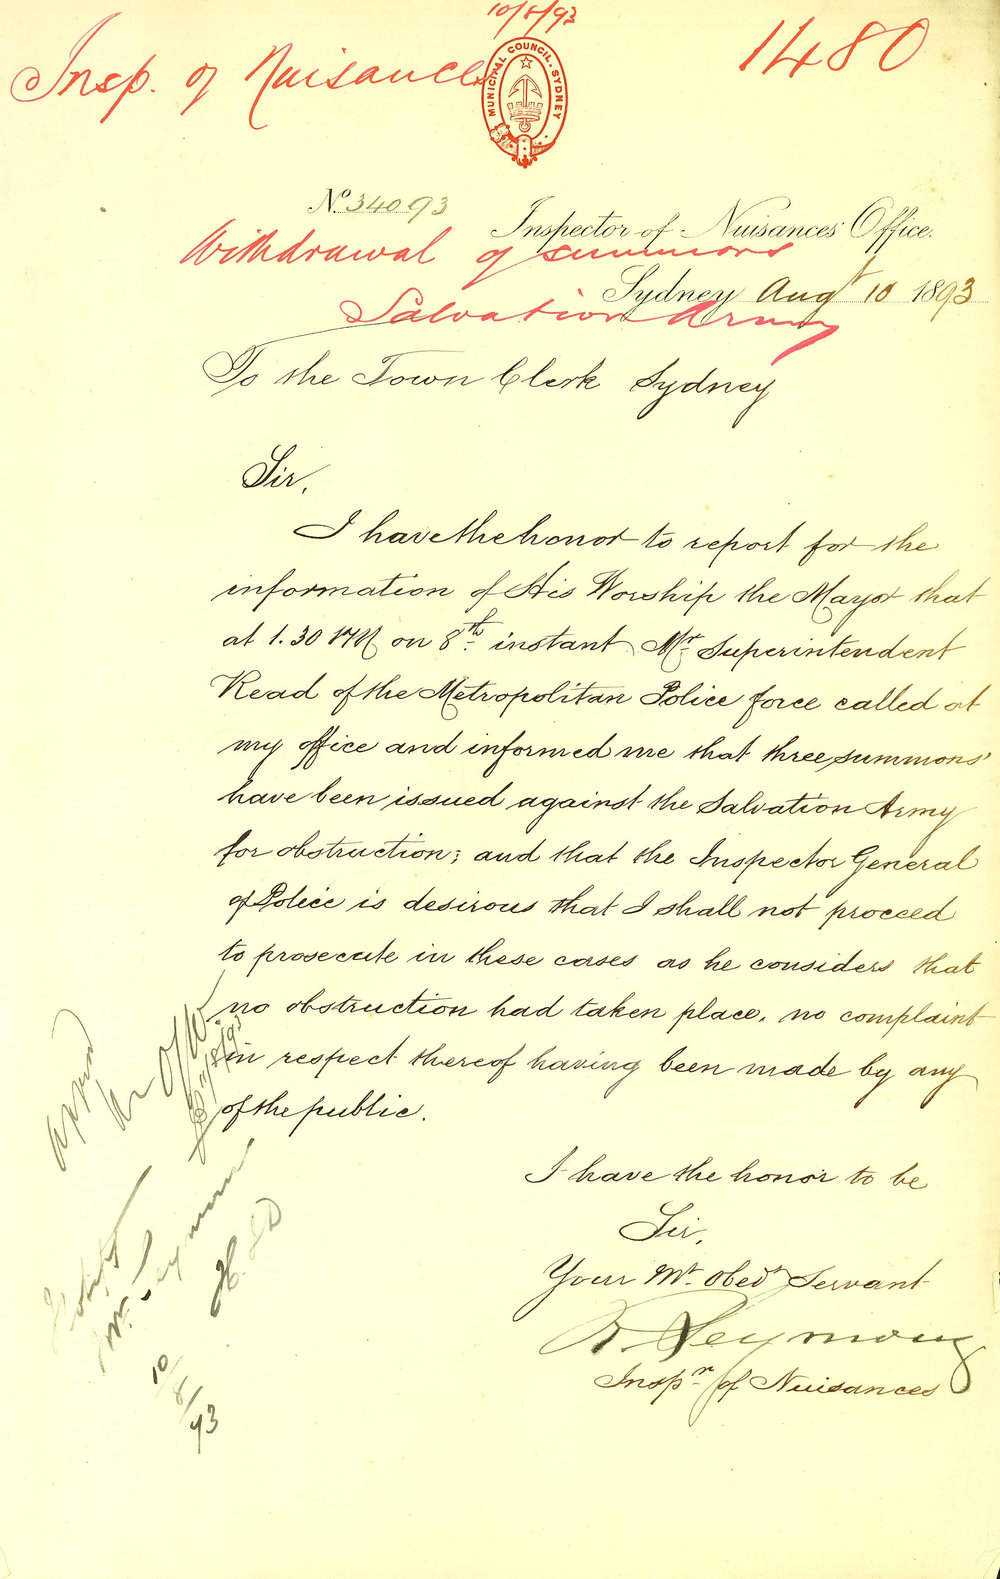 10/8/93
Insp. of Nuisances
1480
MUNICIPAL COUNCIL. SYDNEY
No. 340 93
Inspector of Nuisances' Office.
Withdrawal of summons
Sydney Augt 10 1893
Salvation Army
To the Town Clerk Sydney
Sir,
I have the honor to report for the
information of His Worship the Mayor that
at 1.30 PM on 8th instant Mr Superintendent
Read of the Metropolitan Police force called at
my office and informed me that three summons'
have been issued against the Salvation Army
for obstruction; and that the Inspector General
of Police is desirous that I shall not proceed
to prosecute in these cases as he considers that
no obstruction had taken place, no complaint
in respect thereof having been made by any
of the public.
I have the honor to be
Sir,
Your Mt. Obedt Servant
R. Seymour
Inspr of Nuisances
Mr. Seymour
10/8/93